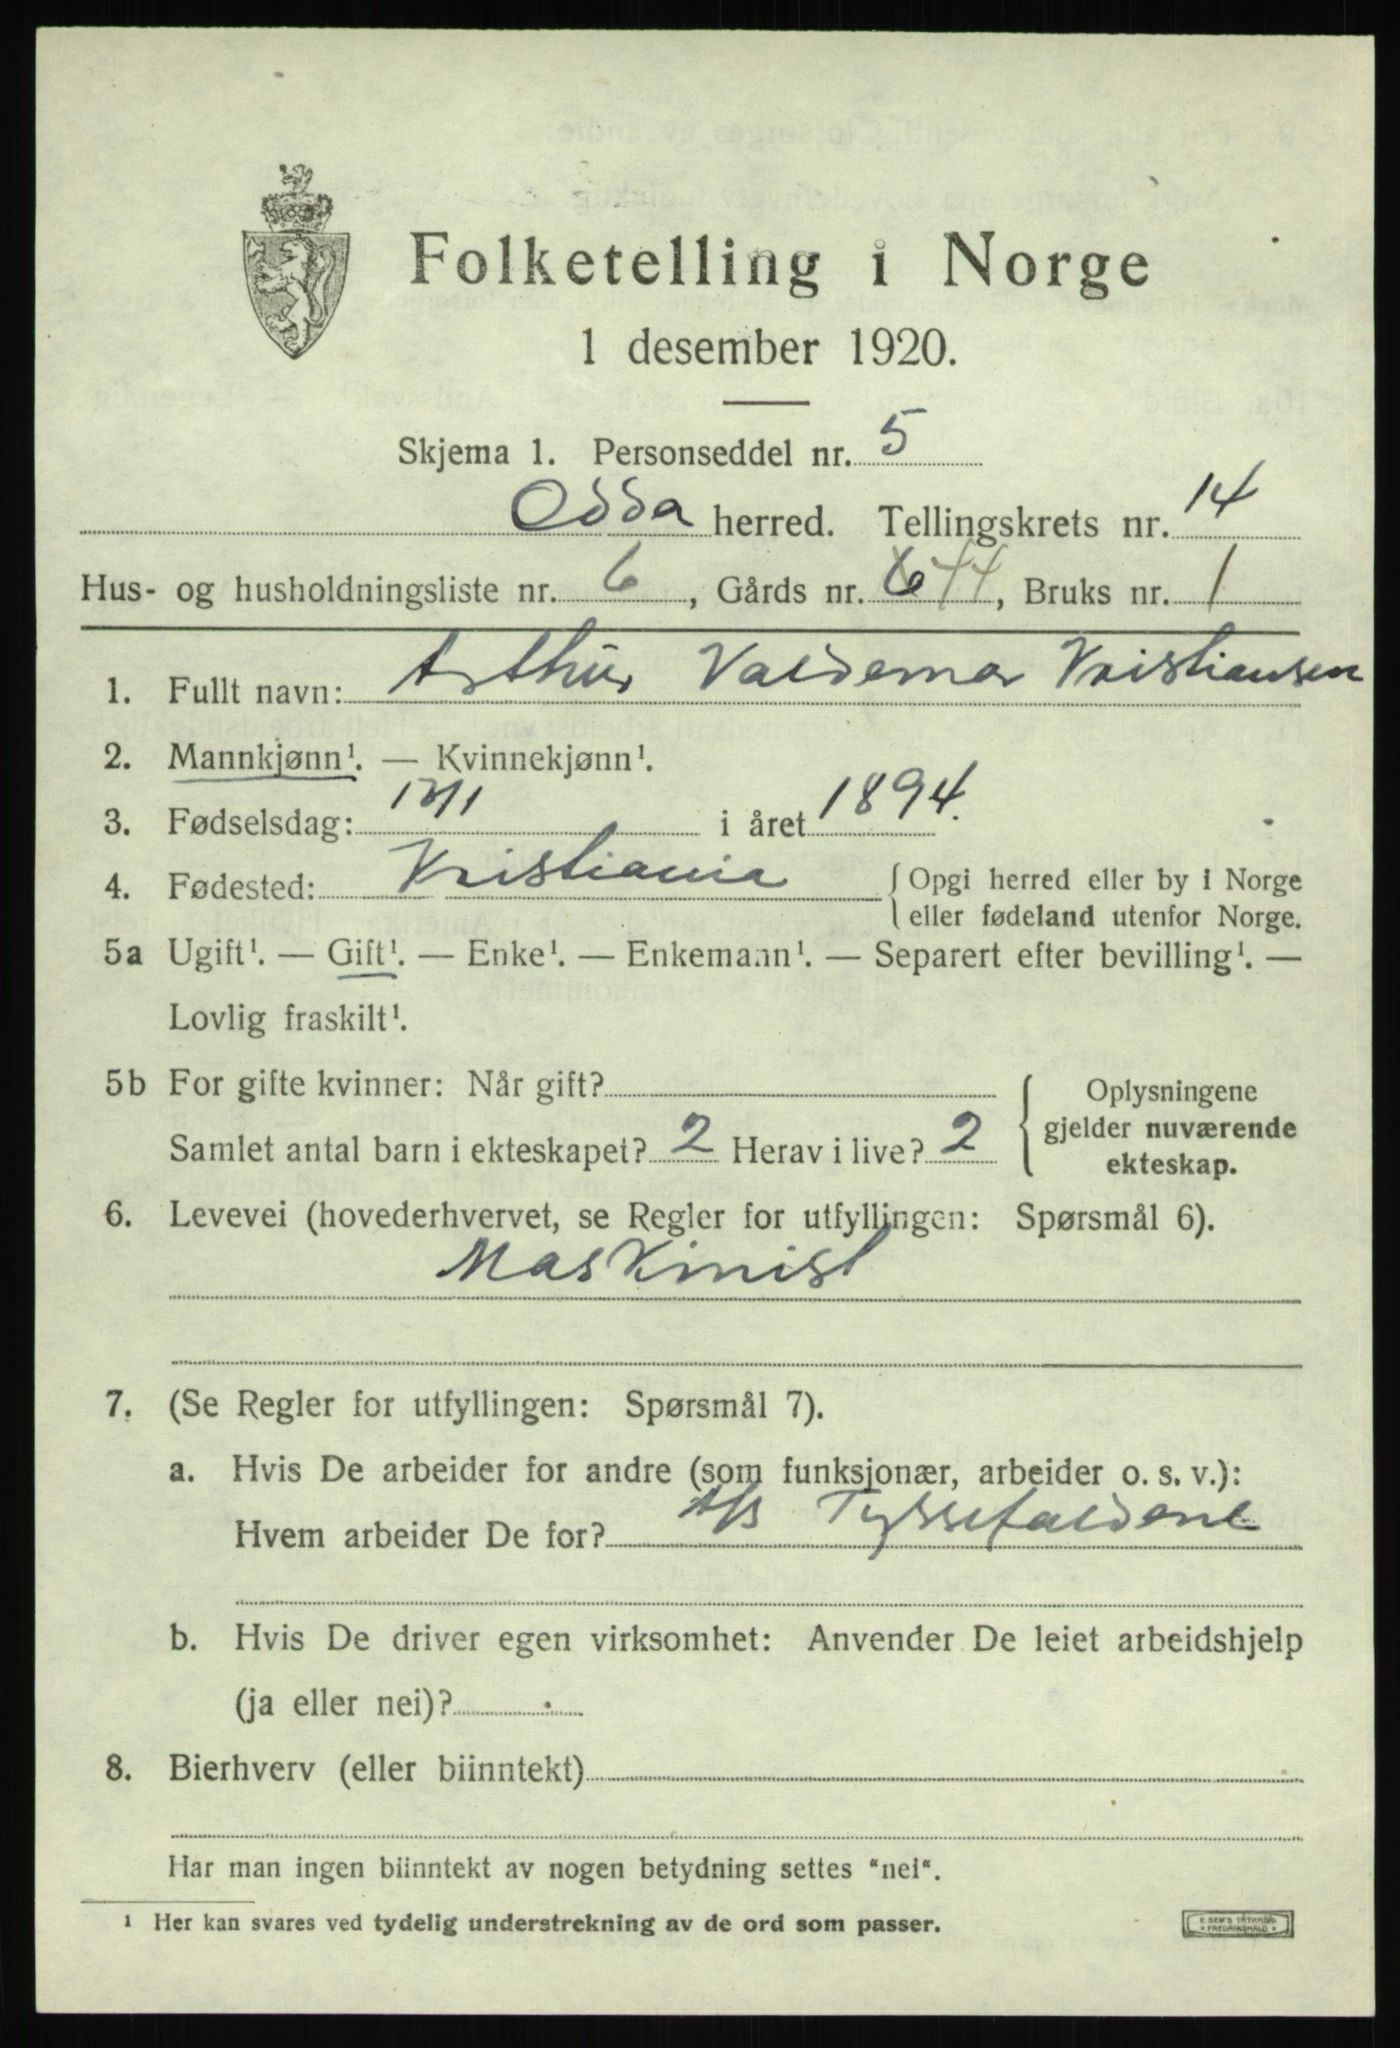 Folketelling i Norge
1 desember 1920.
Skjema 1. Personseddel nr. 5
Odda herred. Tellingskrets nr. 14
Hus- og husholdningsliste nr. 6, Gårds nr. 6 44, Bruks nr. 1
1. Fullt navn: Arthur Valdemar Kristiansen
2. Mannkjønn¹. — Kvinnekjønn¹.
3. Fødselsdag: 13/1 i året 1894.
4. Fødested: Kristiania { Opgi herred eller by i Norge
eller fødeland utenfor Norge.
5a Ugift¹. — Gift¹. — Enke¹. — Enkemann¹. — Separert efter bevilling¹. —
Lovlig fraskilt¹.
5b For gifte kvinner: Når gift? { Oplysningene
gjelder nuværende
Samlet antal barn i ekteskapet? 2 Herav i live? 2
ekteskap.
6. Levevei (hovederhvervet, se Regler for utfyllingen: Spørsmål 6).
Maskinist
7. (Se Regler for utfyllingen: Spørsmål 7).
a. Hvis De arbeider for andre (som funksjonær, arbeider o. s. v.):
Hvem arbeider De for? A/S Tyssefaldene
b. Hvis De driver egen virksomhet: Anvender De leiet arbeidshjelp
(ja eller nei)?
8. Bierhverv (eller biinntekt)
Har man ingen biinntekt av nogen betydning settes "nei".
¹ Her kan svares ved tydelig understrekning av de ord som passer.
E. SEM'S TRYKKERI
* FREDRIKSHALD *